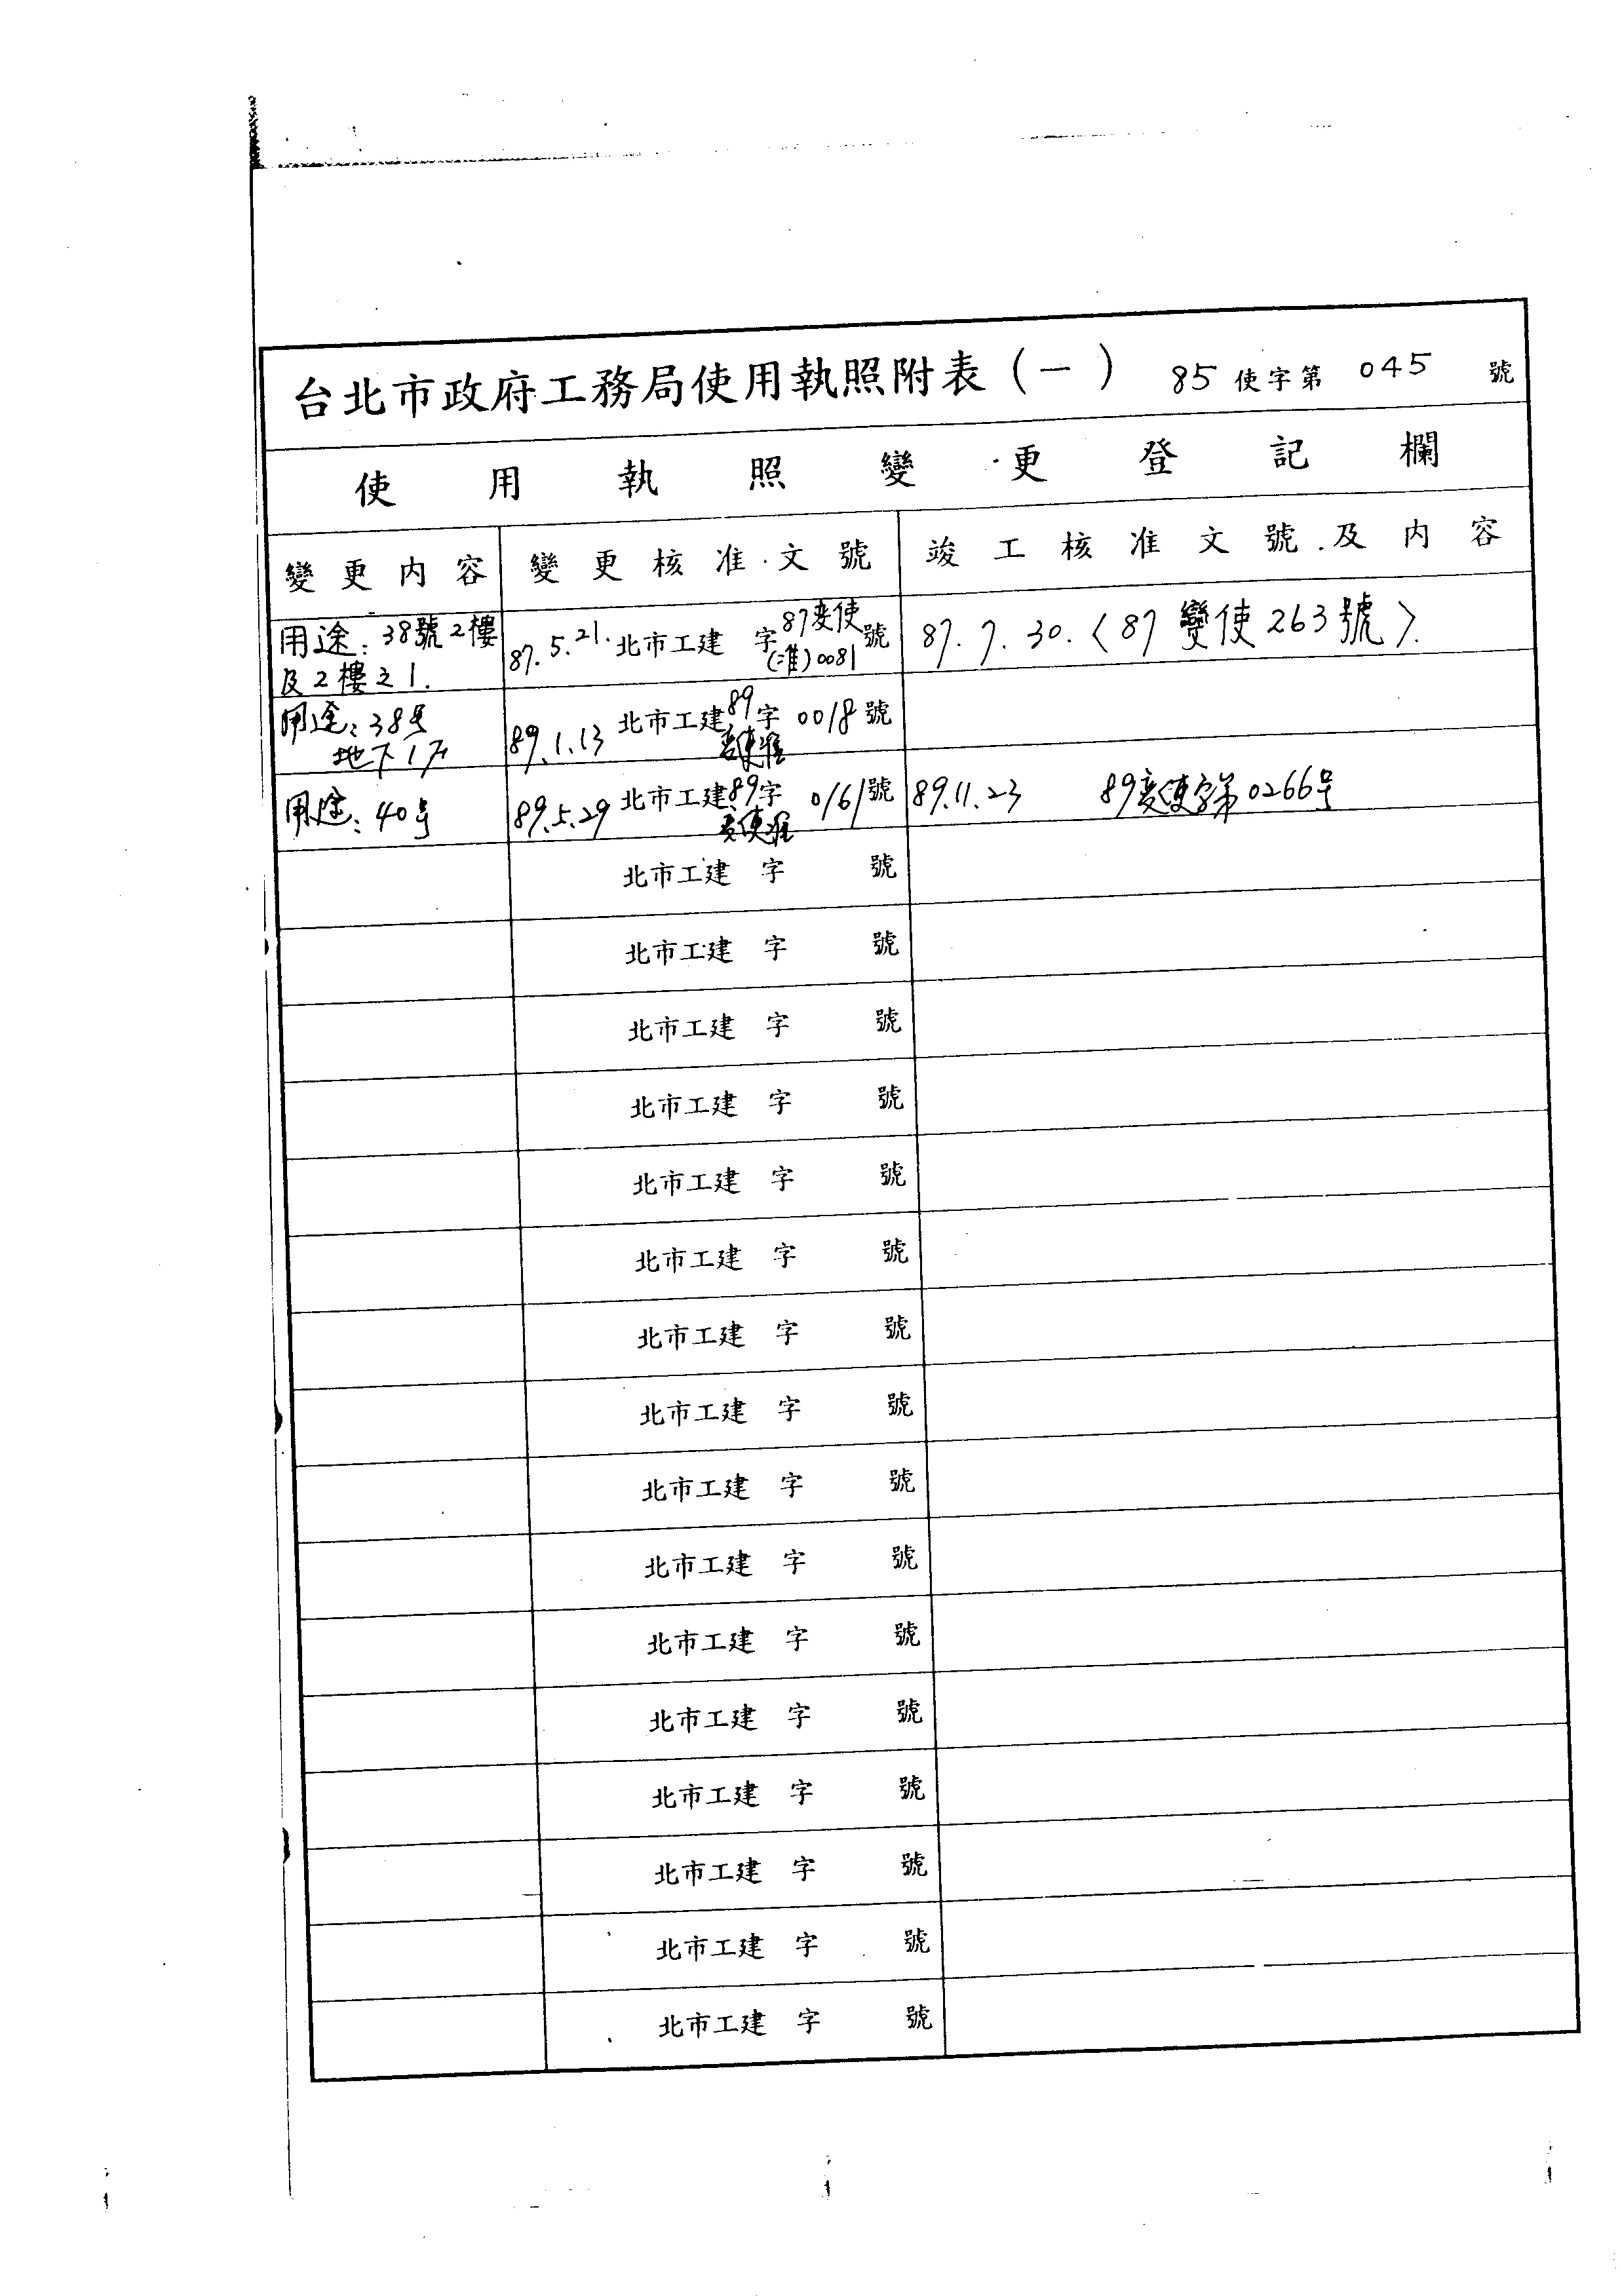 台北市政府工務局使用執照附表（一） 85 使字第 045 號
使用執照變更登記欄
變更內容 變更核准文號 竣工核准文號及內容
用途：38號2樓及2樓之1. 87.5.21. 北市工建 字 87变使(准)0081 號 87.7.30.〈87變使263號〉.
用途：38号地下1F 89.1.13 北市工建 89 字 变使准 0018 號
用途：40号 89.5.29 北市工建 89 字 变使准 0161 號 89.11.23 89变使字第0266号
北市工建 字 號
北市工建 字 號
北市工建 字 號
北市工建 字 號
北市工建 字 號
北市工建 字 號
北市工建 字 號
北市工建 字 號
北市工建 字 號
北市工建 字 號
北市工建 字 號
北市工建 字 號
北市工建 字 號
北市工建 字 號
北市工建 字 號
北市工建 字 號